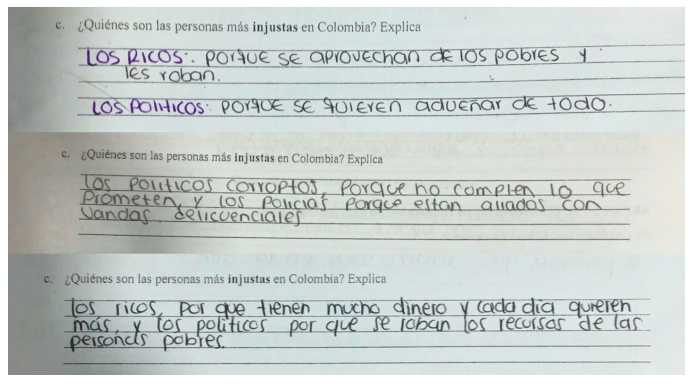 c. ¿Quiénes son las personas más injustas en Colombia? Explica
LOS RICOS: porque se aprovechan de los pobres y
les roban.
LOS Políticos: porque se quieren adueñar de todo.
c. ¿Quiénes son las personas más injustas en Colombia? Explica
los politicos corroptos, porque no complen lo que
Prometen, y los policias porque estan aliados con
vandas delicuenciales
c. ¿Quiénes son las personas más injustas en Colombia? Explica
los ricos, por que tienen mucho dinero y cada dia quieren
más, y los politicos por que se roban los recursos de las
personas pobres.